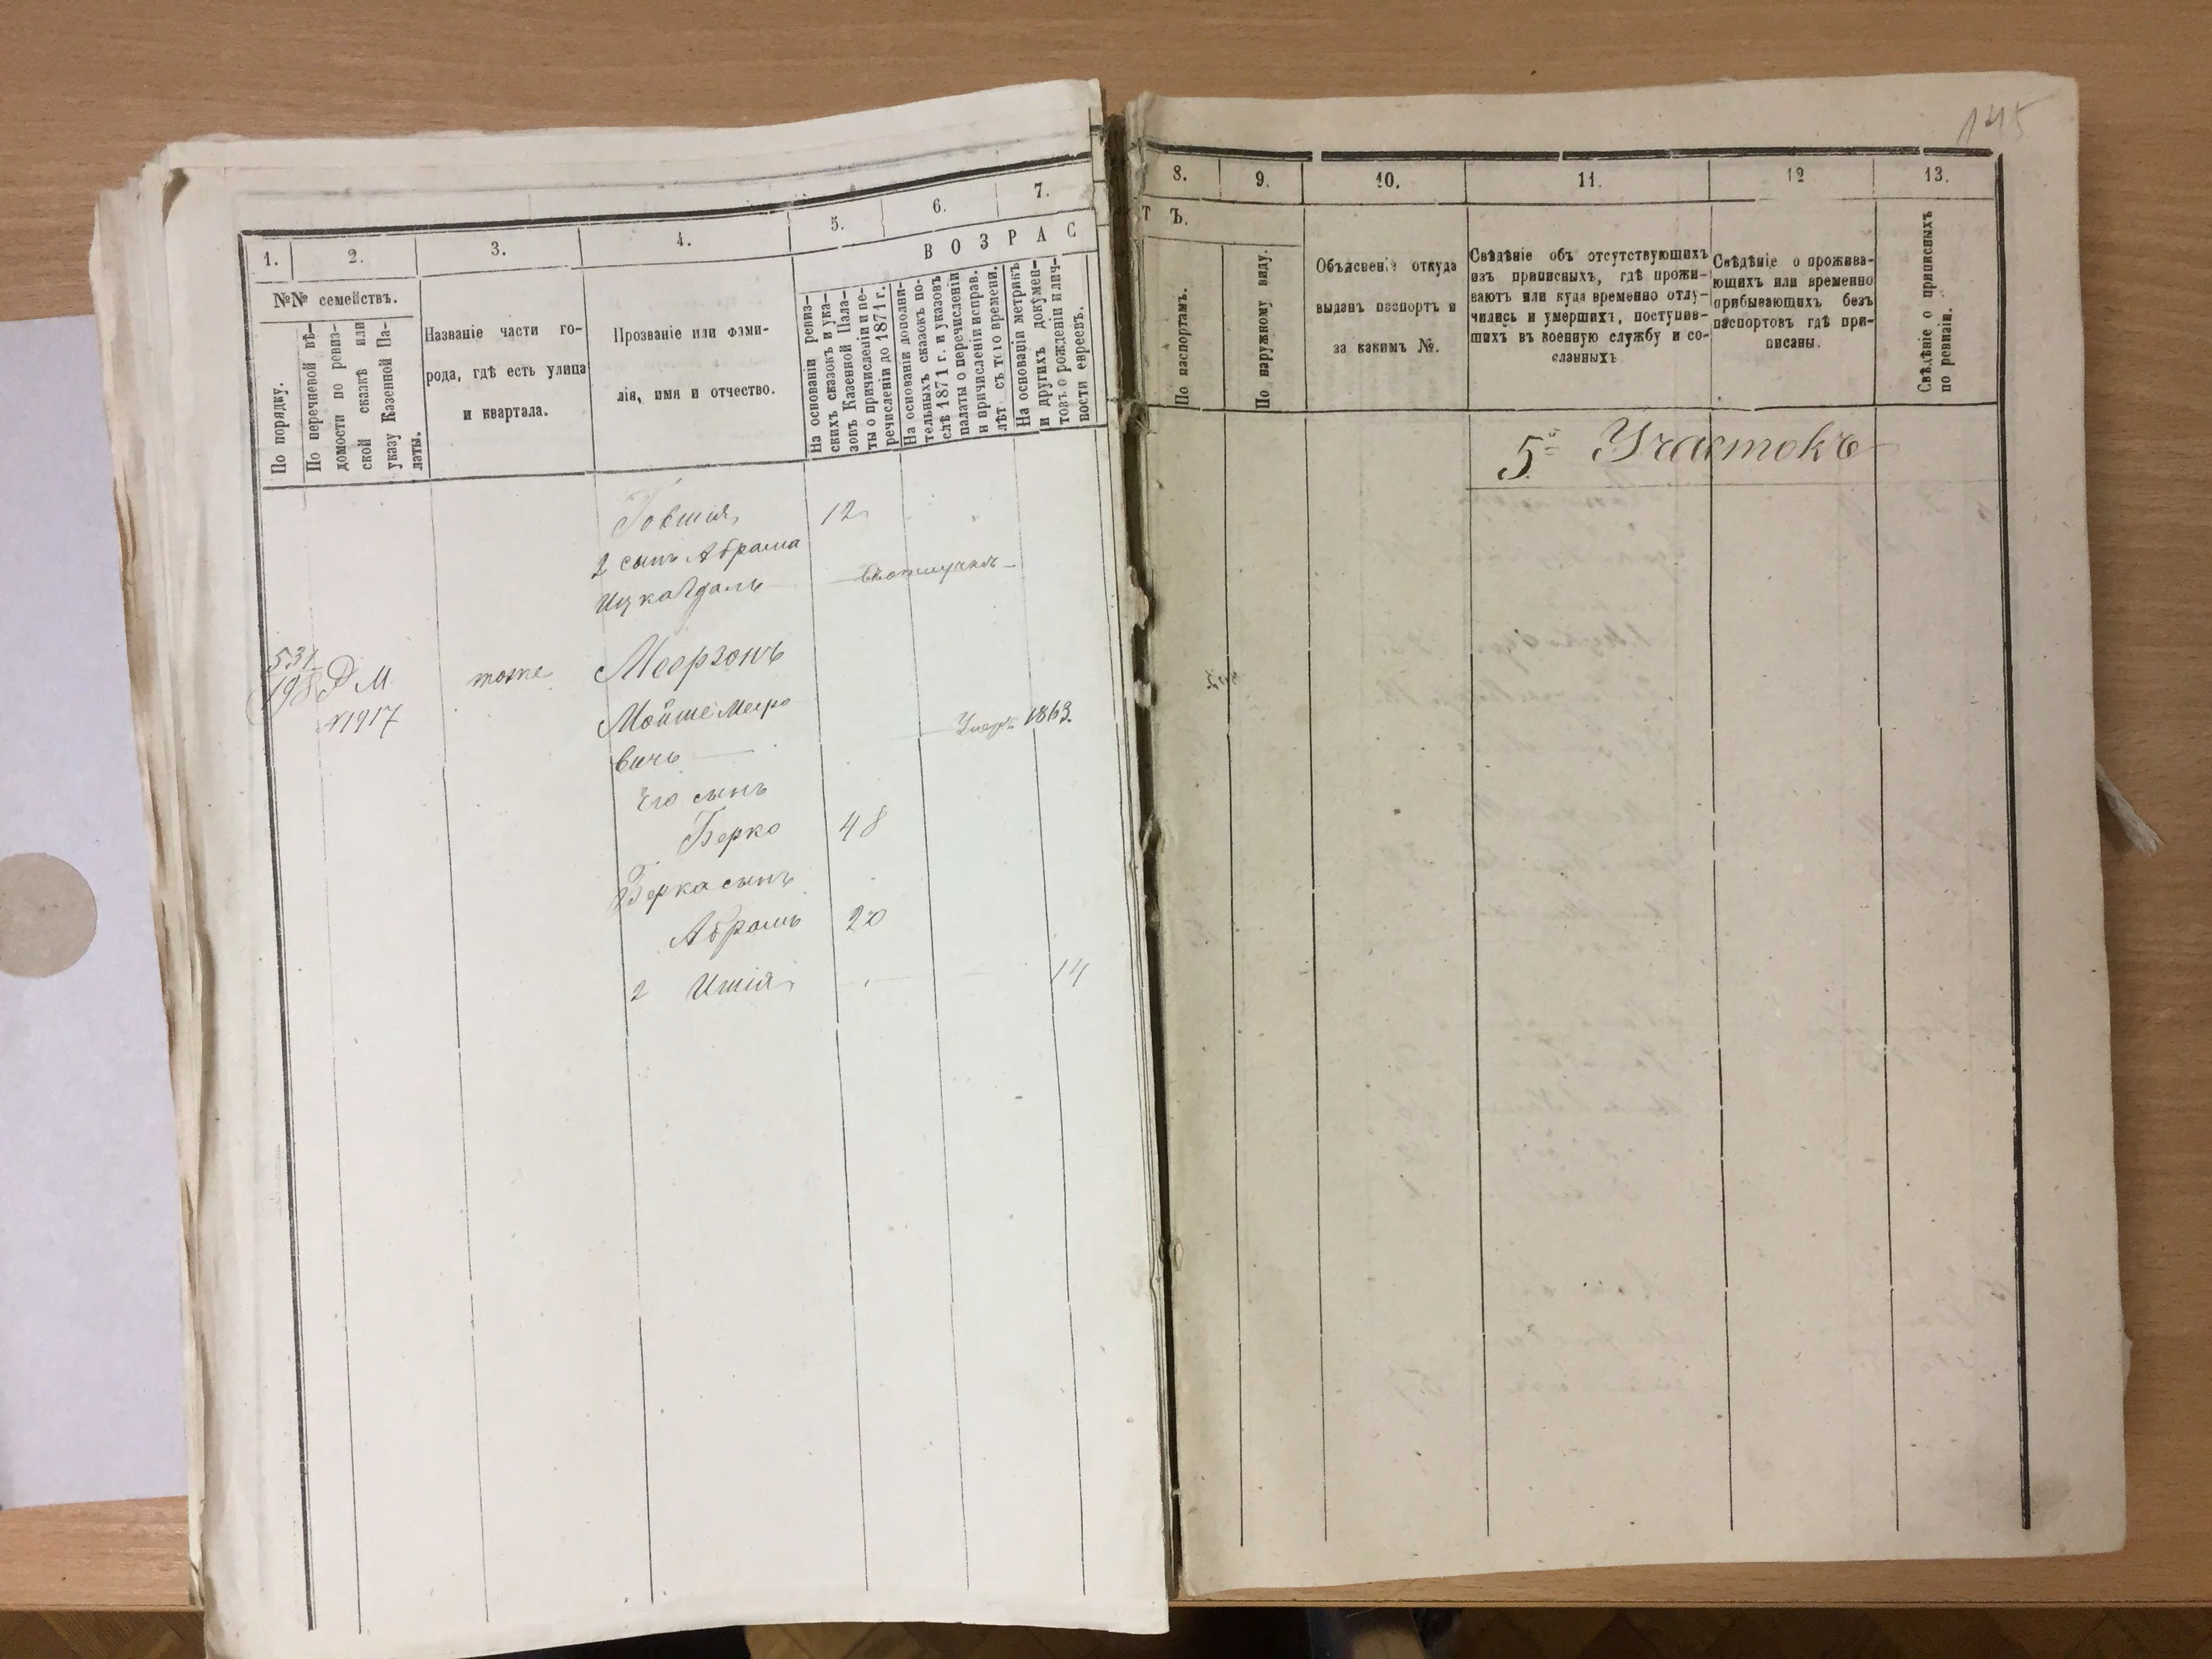 145
1.
2.
3.
4.
5.
6.
7.
№№ семействъ.
В О З Р А С
По порядку.
По перечневой вѣ-
домости по ревиз-
ской сказкѣ или
указу Казенной Па-
латы.
Названіе части го-
рода, гдѣ есть улица
и квартала.
Прозваніе или фами-
лія, имя и отчество.
На основаніи ревиз-
скихъ сказокъ и ука-
зовъ Казенной Пала-
ты о причисленіи и пе-
речисленіи до 1871 г.
На основаніи дополни-
тельныхъ сказокъ по-
слѣ 1871 г. и указовъ
палаты о перечисленіи
и причисленіи исправ.
лѣт съ того времени.
На основаніи метрикъ
и другихъ докумен-
товъ о рожденіи и лич-
ности евреевъ.
Іовшія 12
2 сынъ Абрама
Ицка
531
198 Р М. тоже Меерзонъ
№1917 Мойше Меро
вичъ Умеръ 1863.
Его сынъ
Берко 48
Берка сынъ
Абрамъ 20
2 Ишія 14
8.
9.
10.
11.
12
13.
Т Ъ.
По паспортамъ.
По наружному виду.
Объясненіе откуда
выданъ паспортъ и
за какимъ №.
Свѣдѣніе объ отсутствующихъ
изъ приписныхъ, гдѣ прожи-
ваютъ или куда временно отлу-
чились и умершихъ, поступив-
шихъ въ военную службу и со-
сланныхъ
Свѣдѣніе о прожива-
ющихъ или временно
прибывающихъ безъ
паспортовъ гдѣ при-
писаны.
Свѣдѣніе о приписныхъ
по ревизіи.
5й Участокъ